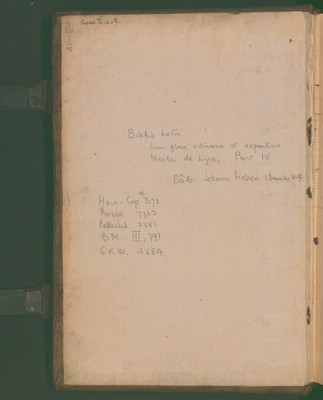 Biblia Latin
cum glosa ordinaria et expositione
Nicolai de Lyra, Part IV
Johann Froben 1 December
Hain-Cop * 3172
Proctor 7763
Pellechet 2351
B.M. III, 791
G.K.W. 4284